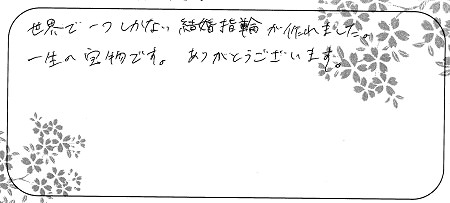 世界で一つしかない結婚指輪が作れました。
一生の宝物です。ありがとうございます。